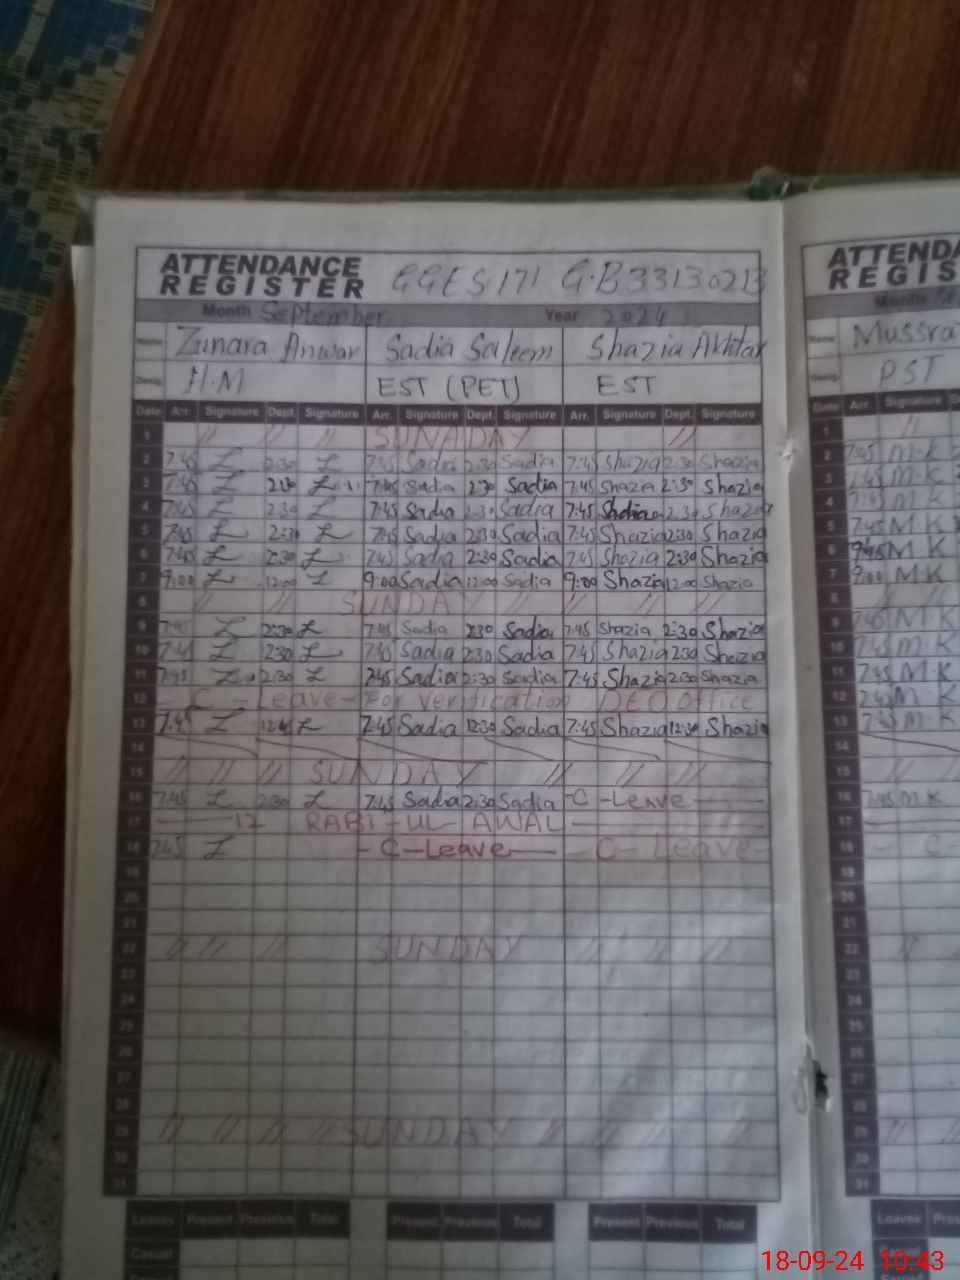 ATTENDANCE REGISTER GGES 171 G.B 33130213
Month September Year 2024
Name Zunara Anwar Sadia Saleem Shazia Akhtar
Desig. H.M EST (PET) EST
Date Arr. Signature Dept. Signature Arr. Signature Dept. Signature Arr. Signature Dept. Signature
1 // // // SUNADAY //
2 7:45 2:30 7:45 Sadia 2:30 Sadia 7:45 Shazia 2:30 Shazia
3 7:45 2:30 7:45 Sadia 2:30 Sadia 7:45 Shazia 2:30 Shazia
4 7:45 2:30 7:45 Sadia 2:30 Sadia 7:45 2:30 Shazia
5 7:45 2:30 7:45 Sadia 2:30 Sadia 7:45 Shazia 2:30 Shazia
6 7:45 2:30 7:45 Sadia 2:30 Sadia 7:45 Shazia 2:30 Shazia
7 9:00 12:00 9:00 Sadia 12:00 Sadia 9:00 Shazia 12:00 Shazia
8 // // SUNDAY // // // // //
9 7:45 2:30 7:45 Sadia 2:30 Sadia 7:45 Shazia 2:30 Shazia
10 2:30 7:45 Sadia 2:30 Sadia 7:45 Shazia 2:30 Shazia
11 7:45 2:30 7:45 Sadia 2:30 Sadia 7:45 Shazia 2:30 Shazia
12 - C - Leave - For Verification DEO Office
13 7:45 7:45 Sadia 12:30 Sadia 7:45 Shazia 12:30 Shazia
14
15 // // // SUNDAY // // //
16 7:45 2:30 7:45 Sadia 2:30 Sadia C - Leave -
17 12 RABI-UL AWAL
18 7:45 - C - Leave - - C - Leave -
19
20
21
22 // // // SUNDAY // // //
23
24
25
26
27
28
29 // // // // SUNDAY // // // //
30
31
Leaves Present Previous Total Present Previous Total Present Previous Total
Casual
ATTENDA
REGIS
Month
Name Mussra
Desig. PST
Date Arr. Signature
1 //
2 7:45 M.K
3 7:45 M.K
4 7:45 M.K
5 7:45 M.K
6 M.K
7 9:00 M.K
8 // //
9 7:45 M.K
10 7:45 M.K
11 7:45 M.K
12 7:45 M.K
13 7:45 M.K
14
15 //
16 7:45 M.K
17
18 - C -
19
20
21
22 //
23
24
25
26
27
28
29 // //
30
31
Leaves
Casual
18-09-24 10:43